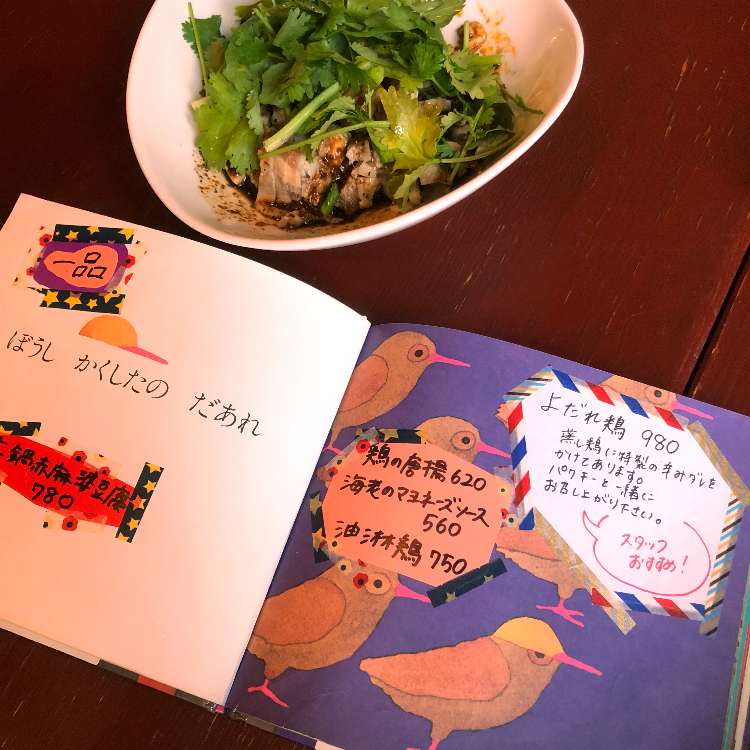 一品
ぼうし かくしたの だあれ
鍋赤麻婆豆腐
780
鶏の唐揚 620
海老のマヨネーズソース
560
油淋鶏 750
よだれ鶏 980
蒸し鶏に特製の辛みダレを
かけてあります。
パクチーと一緒に
お召し上がり下さい。
スタッフ
おすすめ!